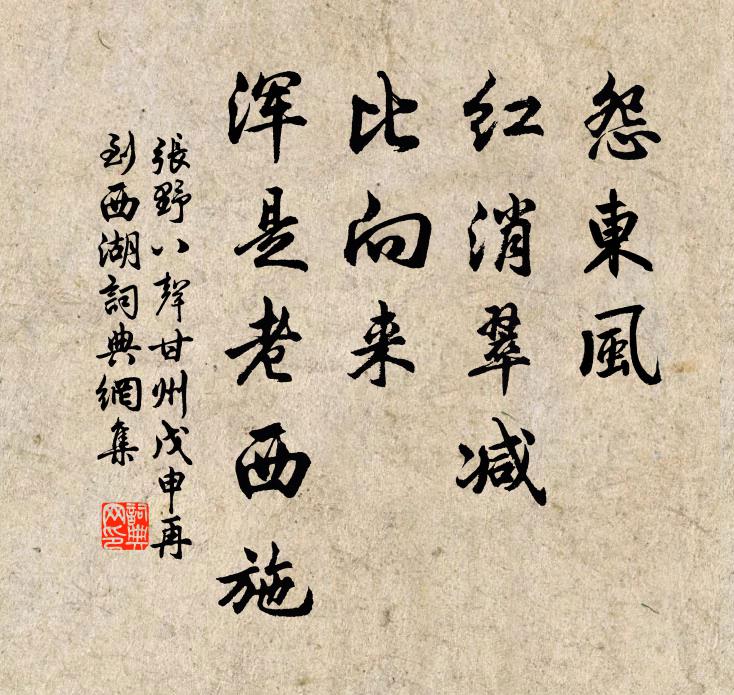 怨東風
红消翠减
比向来
浑是老西施
張野八聲甘州戊申再
到西湖詞典網集
詞典
网印